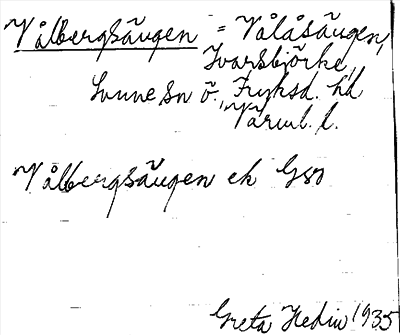 Vålbergsängen = Vålåsängen,
Ivarsbjörke,
Sunne sn Ö. Fryksd. hd
Värml. l.
Vålbergsängen ek G80
Greta Hedin 1935